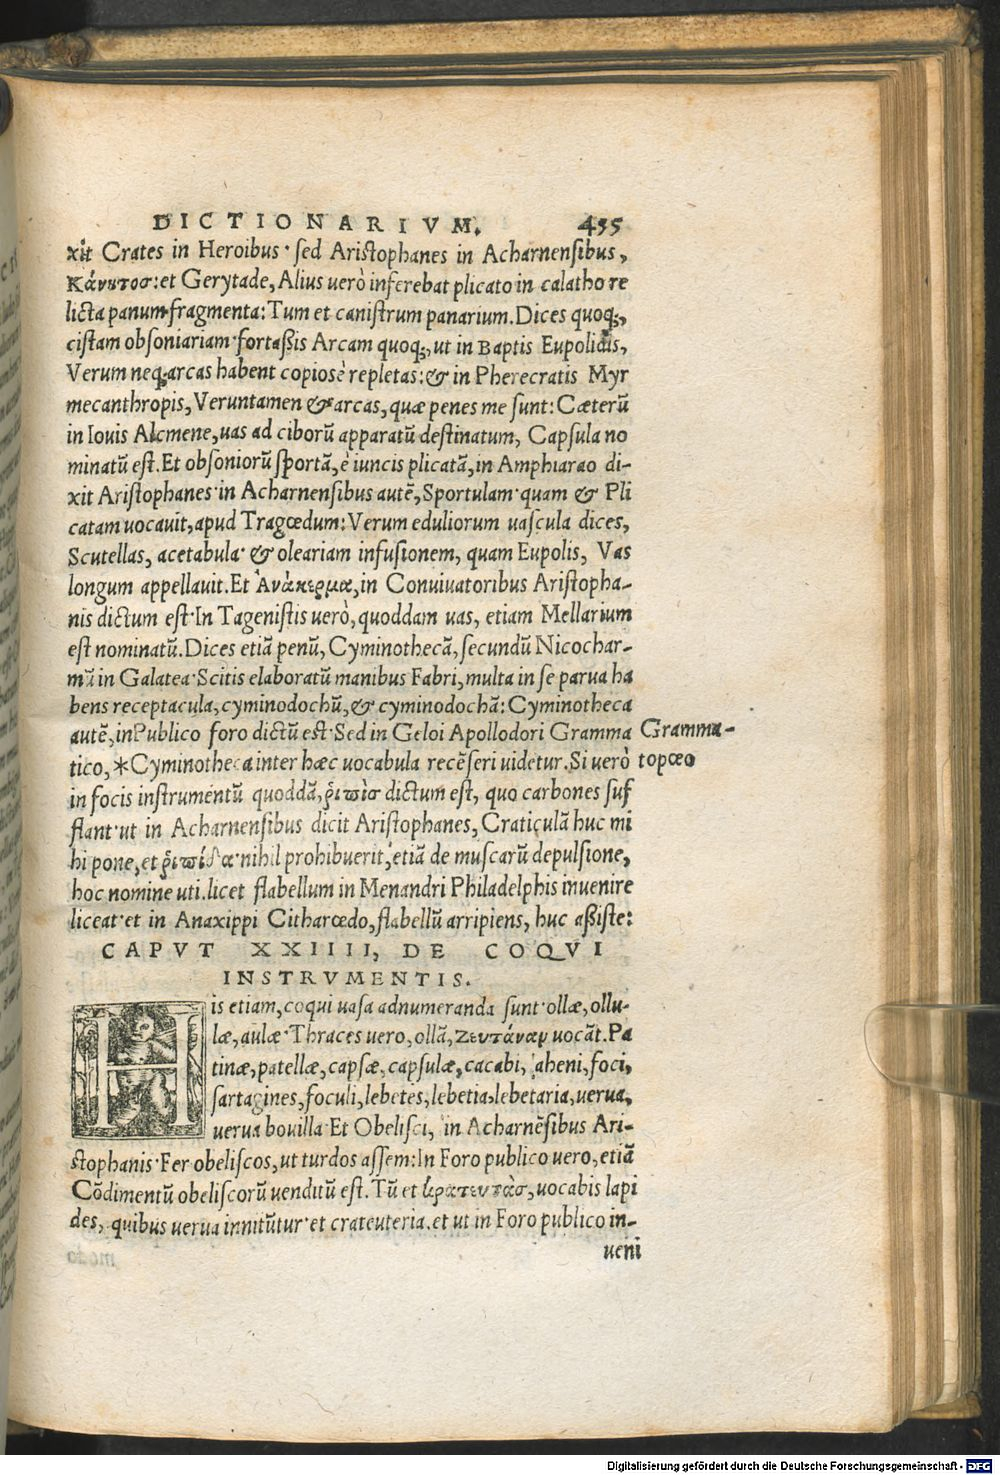 DICTIONARIVM. 435
xit Crates in Heroibus· sed Aristophanes in Acharnensibus,
Κάνυτοσ: et Gerytade, Alius verò inferebat plicato in calatho re
licta panum fragmenta: Tum et canistrum panarium. Dices quoq;,
cistam obsoniariam· fortaßis Arcam quoq;, ut in Baptis Eupolidis,
Verum neq; arcas habent copiosè repletas: & in Pherecratis Myr
mecanthropis, Veruntamen & arcas, quæ penes me sunt: Cæterũ
in Iouis Alcmene, uas ad ciborũ apparatũ destinatum, Capsula no
minatũ est. Et obsoniorũ sportã, è iuncis plicatã, in Amphiarao di-
xit Aristophanes· in Acharnensibus autẽ, Sportulam· quam & Pli
catam uocauit, apud Tragœdum: Verum eduliorum uascula dices,
Scutellas, acetabula· & oleariam infusionem, quam Eupolis, Vas
longum appellauit. Et Ἀνάκερμα, in Conuiuatoribus Aristopha-
nis dictum est· In Tagenistis uerò, quoddam uas, etiam Mellarium
est nominatũ. Dices etiã penũ, Cyminothecã, secundũ Nicochar-
mũ in Galatea· Scitis elaboratũ manibus Fabri, multa in se parua ha
bens receptacula, cyminodochũ, & cyminodochã: Cyminotheca
autẽ, in Publico foro dictũ est· Sed in Geloi Apollodori Gramma
Gramma-
tico, *Cyminotheca inter hæc uocabula recẽseri uidetur. Si uerò
topœo
in focis instrumentũ quoddã, ῥιπὶσ dictum est, quo carbones suf
flant· ut in Acharnensibus dicit Aristophanes, Craticulã huc mi
hi pone, et ῥιπίδα· nihil prohibuerit, etiã de muscarũ depulsione,
hoc nomine uti. licet flabellum in Menandri Philadelphis inuenire
liceat· et in Anaxippi Citharœdo, flabellũ arripiens, huc aßiste:
CAPVT XXIIII, DE COQVI
INSTRVMENTIS.
His etiam, coqui uasa adnumeranda sunt· ollæ, ollu-
læ, aulæ· Thraces uero, ollã, Ζευτάναν uocãt. Pa
tinæ, patellæ, capsæ, capsulæ, cacabi, aheni, foci,
sartagines, foculi, lebetes, lebetia, lebetaria, uerua,
uerua bouilla· Et Obelisci, in Acharnẽsibus Ari-
stophanis· Fer obeliscos, ut turdos assem: In Foro publico uero, etiã
Cõdimentũ obeliscorũ uenditũ est. Tũ et κρατευτὰσ, uocabis lapi
des, quibus uerua innitũtur· et crateuteria. et ut in Foro publico in-
ueni
Digitalisierung gefördert durch die Deutsche Forschungsgemeinschaft - DFG